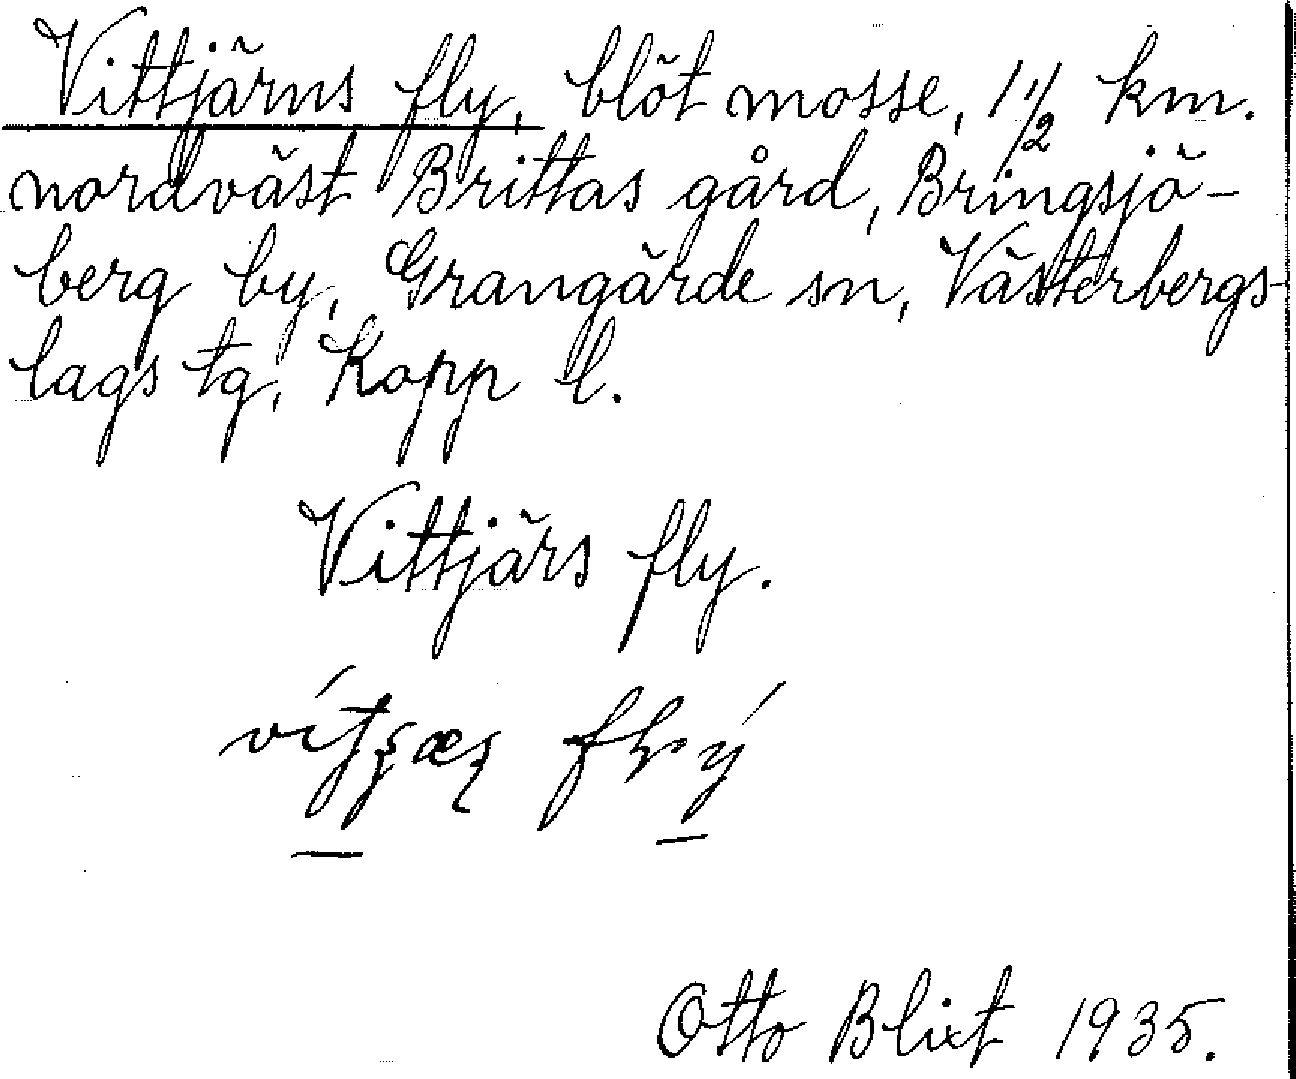 Vittjärns fly, blöt mosse, 1 1/2 km.
nordväst Brittas gård, Bringsjö-
berg by, Grangärde sn, Västerbergs-
lags tg, Kopp l.
Vittjärs fly.
Otto Blixt 1935.